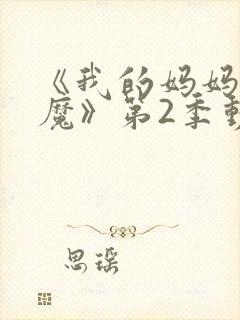 《我的妈妈
魔》第2季動
思瑶